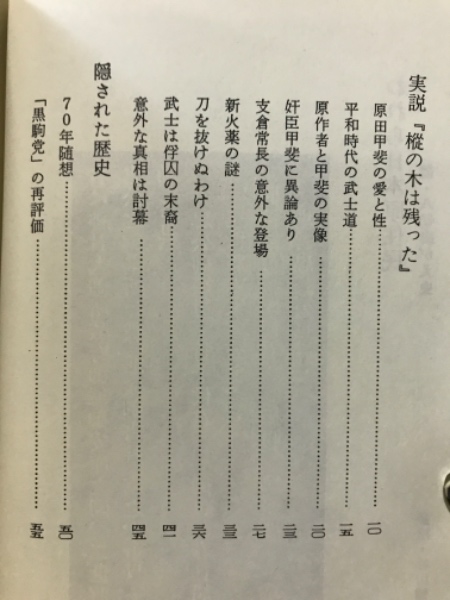 実説『樅の木は残った』
原田甲斐の愛と性……一〇
平和時代の武士道……一五
原作者と甲斐の実像……二〇
奸臣甲斐に異論あり……二三
支倉常長の意外な登場……二七
新火薬の謎……三三
刀を抜けぬわけ……三六
武士は俘囚の末裔……四一
意外な真相は討幕……四五
隠された歴史
70年随想……五〇
「黒駒党」の再評価……五五